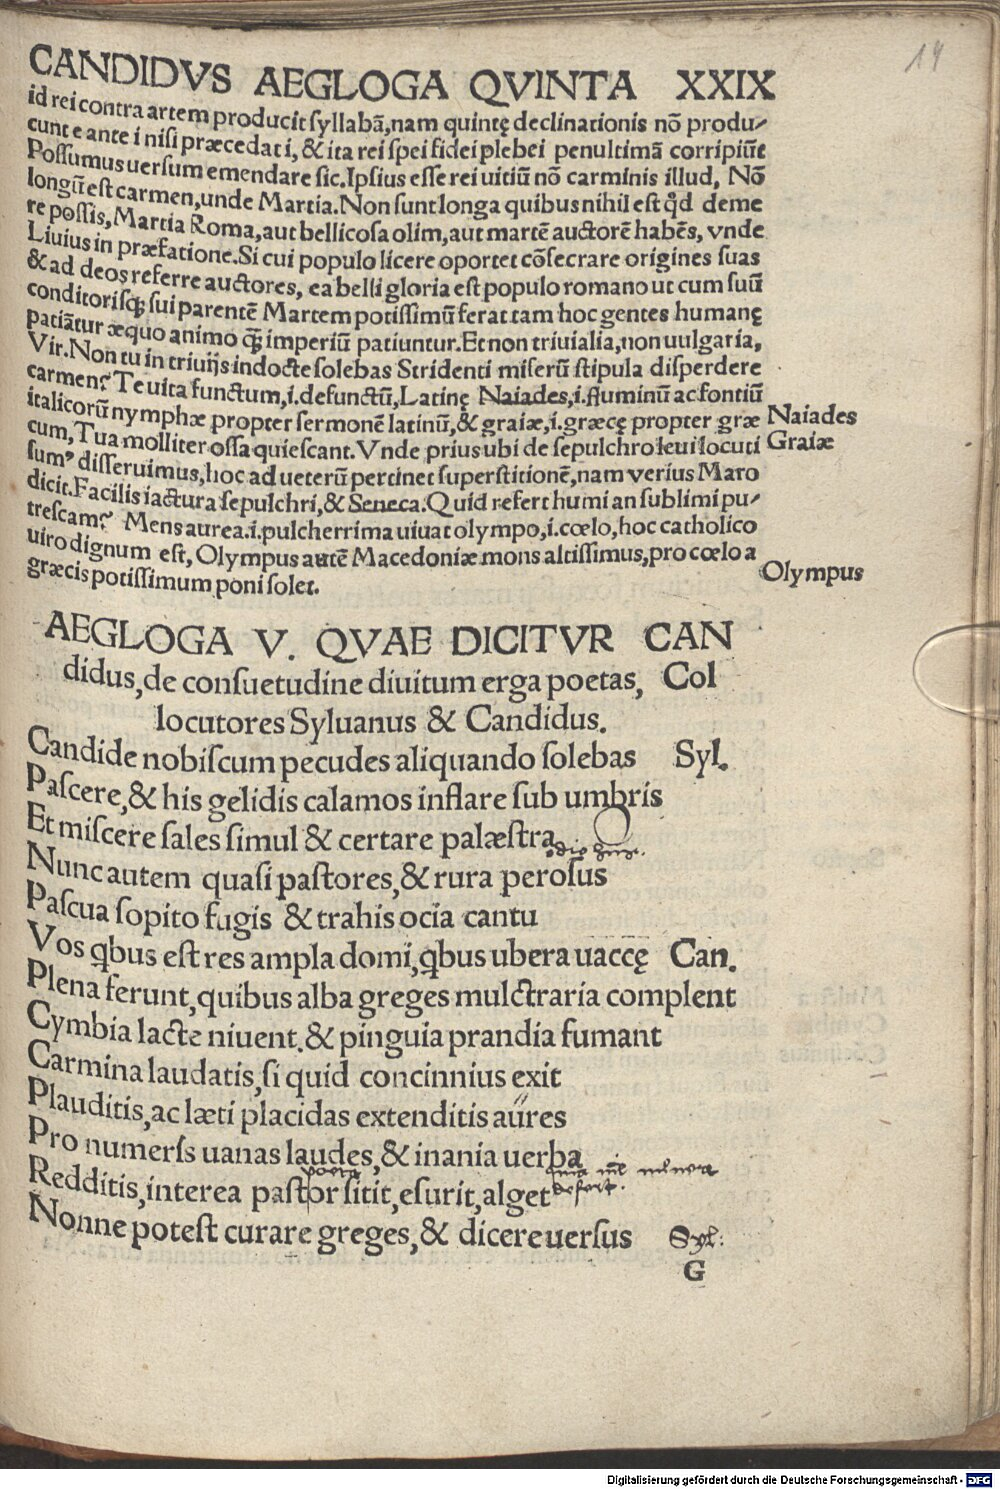 14
CANDIDVS AEGLOGA QVINTA XXIX
id rei contra artem producit syllabã,nam quintę declinationis nõ produ⸗
cunt e ante i nisi præcedat i, & ita rei spei fidei plebei penultimã corripiũt
Possumus uersum emendare sic.Ipsius esse rei uitiũ nõ carminis illud, Nõ
longũ est carmen,unde Martia.Non sunt longa quibus nihil est qd deme
re possis,Martia Roma,aut bellicosa olim,aut martẽ auctorẽ habẽs, vnde
Liuius in præfatione.Si cui populo licere oportet cõsecrare origines suas
& ad deos referre auctores, ea belli gloria est populo romano ut cum suũ
conditorisq; sui parentẽ Martem potissimũ ferat tam hoc gentes humanę
patiãtur æquo animo q̃ imperiũ patiuntur.Et non triuialia,non uulgaria,
Vir.Non tu in triuijs indocte solebas Stridenti miserũ stipula disperdere
carmen? Te uita functum,i.defunctũ,Latinę Naiades,i.fluminũ ac fontiũ
italicorũ nymphæ propter sermonẽ latinũ,& graiæ,i.græcę propter græ Naiades
cum,Tua molliter ossa quiescant.Vnde prius ubi de sepulchro leui locuti Graiæ
sumꝰ disseruimus,hoc ad ueterũ pertinet superstitionẽ,nam verius Maro
dicit.Facilis iactura sepulchri,& Seneca.Quid refert humi an sublimi pu⸗
trescam? Mens aurea.i.pulcherrima uiuat olympo,i.cœlo,hoc catholico
uiro dignum est, Olympus autẽ Macedoniæ mons altissimus,pro cœlo a
græcis potissimum poni solet. Olympus
AEGLOGA V. QVAE DICITVR CAN
didus,de consuetudine diuitum erga poetas, Col
locutores Syluanus & Candidus.
Candide nobiscum pecudes aliquando solebas Syl.
Pascere,& his gelidis calamos inflare sub umbris
Et miscere sales simul & certare palæstra
Nunc autem quasi pastores,& rura perosus
Pascua sopito fugis & trahis ocia cantu
Vos qbus est res ampla domi,qbus ubera uaccę Can.
Plena ferunt,quibus alba greges mulctraria complent
Cymbia lacte niuent.& pinguia prandia fumant
Carmina laudatis,si quid concinnius exit
Plauditis,ac læti placidas extenditis aures
Pro numeris uanas laudes,& inania uerba
poeta
Redditis,interea pastor sitit,esurit,alget
Nonne potest curare greges,& dicere uersus Syl:
G
Digitalisierung gefördert durch die Deutsche Forschungsgemeinschaft - DFG